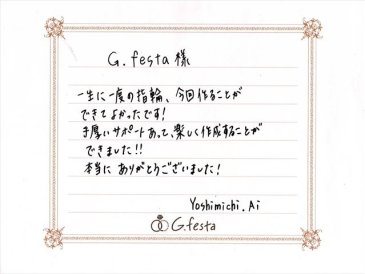 G.festa様
一生に一度の指輪、今回作ることが
できてよかったです!
手厚いサポートあって、楽しく作成することが
できました!!
本当に ありがとうございました!
Yoshimichi.Ai
G.festa